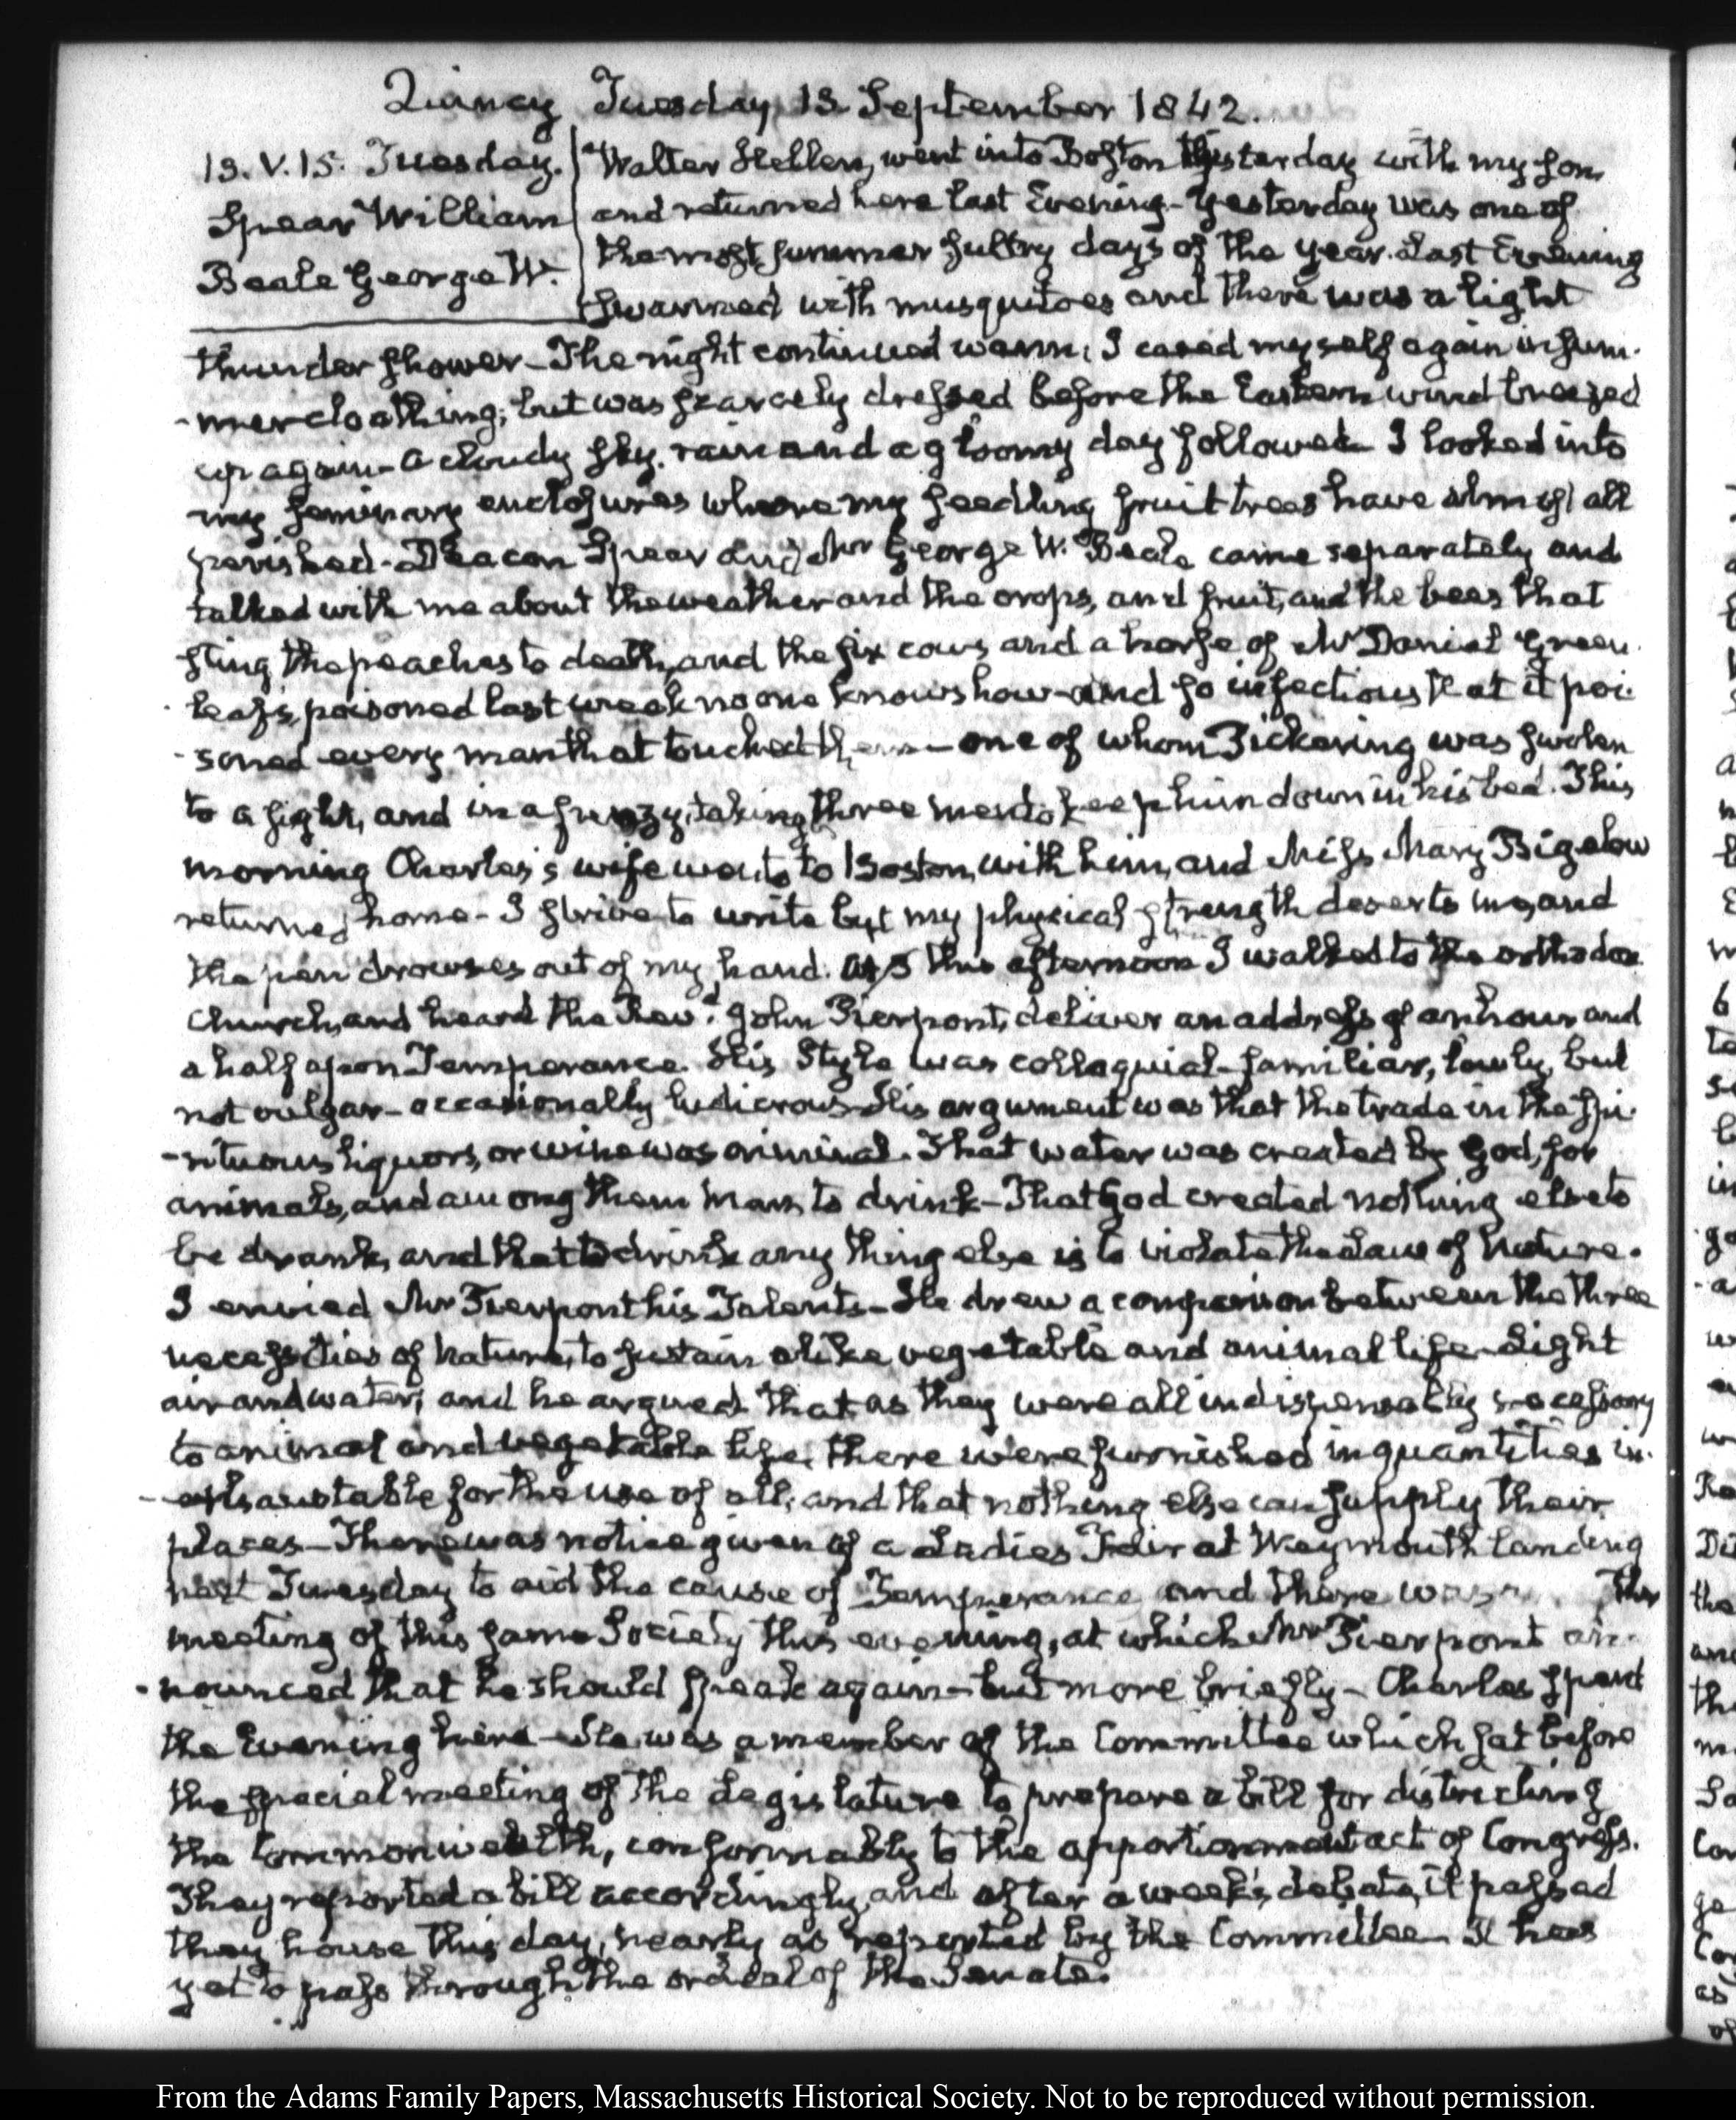 Quincy Tuesday 13 September 1842.
13. V. 15. Tuesday.
Spear William
Beale George W.
Walter Hellen, went into Boston yesterday with my son
and returned here last Evening - Yesterday was one of
the most summer sultry days of the year. Last Evening
swarmed with musquitoes and there was a light
thunder shower - The night continued warm, I cased myself again in sum-
-mer cloathing; but was scarcely dressed before the Eastern wind breezed
up again - a cloudy sky, rain and a gloomy day followed I looked into
my seminary enclosures where my seedling fruit trees have almost all
perished - Deacon Spear and Mr George W. Beale came separately and
talked with me about the weather and the crops, and fruit, and the bees that
sting the peaches to death, and the six cows and a horse of Mr Daniel Green-
-leaf's, poisoned last week no one knows how - and so infectious that it poi-
-soned every man that touched them - one of whom Pickering was swolen
to a sight, and in a frenzy, taking three men to keep him down in his bed. This
morning Charles's wife went to Boston, with him, and Miss Mary Bigelow
returned home - I strive to write but my physical strength deserts me, and
the pen drowses out of my hand. At 3 this afternoon I walked to the orthodox
Church, and heard the Revd. John Pierpont, deliver an address of an hour and
a half upon Temperance. His Style was colloquial - familiar, lowly, but
not vulgar - occasionally ludicrous - His argument was that the trade in the spi-
-rituous liquors, or wine was criminal. That water was created by God, for
animals, and among them Man, to drink - That God created nothing else to
be drank, and that to drink any thing else is to violate the Law of Nature.
I envied Mr Pierpont his Talents - He drew a comparison between the three
necessities of Nature, to sustain alike vegetable and animal life - Light
air and water; and he argued that as they were all indispensably necessary
to animal and vegetable life, there were furnished in quantities in-
-exhaustable for the use of all; and that nothing else can supply their
places - There was notice given of a Ladies Fair at Weymouth landing
next Tuesday to aid the cause of Temperance and there was
meeting of this same Society this evening, at which Mr Pierpont an-
-nounced that he should speak again - but more briefly - Charles spent
the Evening here - He was a member of the Committee which sat before
the special meeting of the Legislature to prepare a bill for districting
the Commonwealth, conformably to the apportionment act of Congress.
They reported a bill accordingly, and after a week's debate, it passed
they house this day, nearly as reported by the Committee. It has
yet to pass through the ordeal of the Senate.
From the Adams Family Papers, Massachusetts Historical Society. Not to be reproduced without permission.